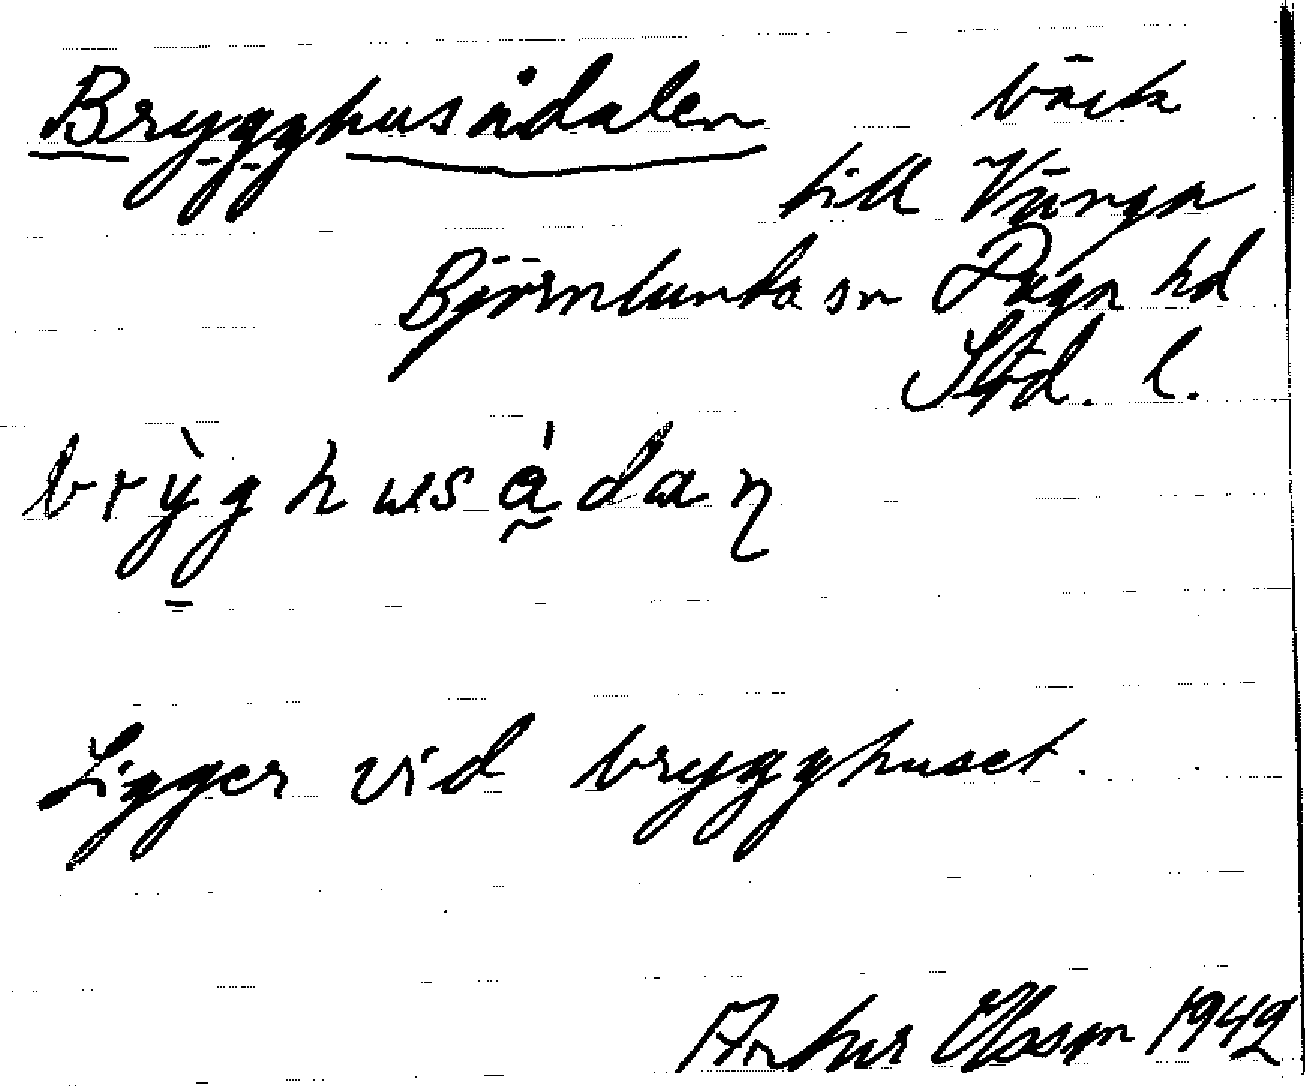 Brygghusådalen bäck
till Vänga
Björnlunda sn Daga hd
Srd. l.
brỳghusådaɳ
Ligger vid brygghuset.
Arthur Olsson 1942